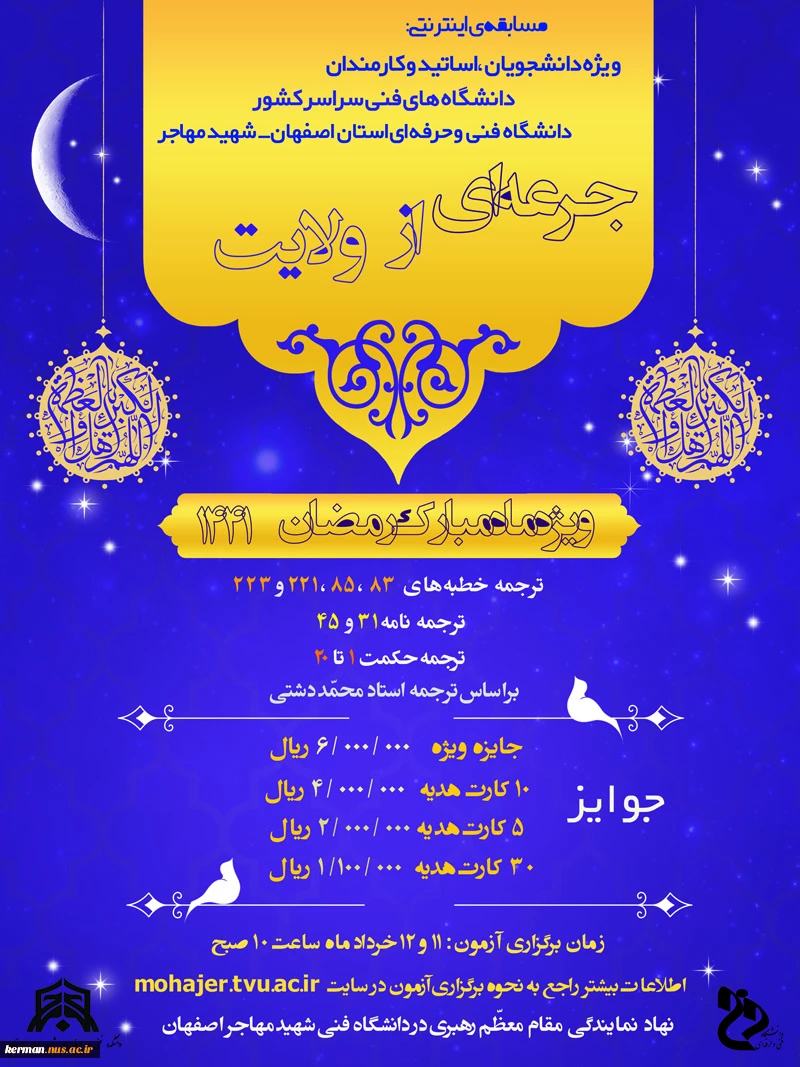 مسابقه‌ی اینترنتی:
ویژه دانشجویان، اساتید و کارمندان
دانشگاه های فنی سراسر کشور
دانشگاه فنی و حرفه ای استان اصفهان_ شهید مهاجر
جرعه‌ای از ولایت
ویژه ماه مبارک رمضان ۱۴۴۱
ترجمه خطبه های ۸۳، ۸۵، ۲۲۱ و ۲۲۳
ترجمه نامه ۳۱ و ۴۵
ترجمه حکمت ۱ تا ۲۰
براساس ترجمه استاد محمّد دشتی
جوایز
جایزه ویژه ۶/۰۰۰/۰۰۰ ریال
۱۰ کارت هدیه ۴/۰۰۰/۰۰۰ ریال
۵ کارت هدیه ۲/۰۰۰/۰۰۰ ریال
۳۰ کارت هدیه ۱/۱۰۰/۰۰۰ ریال
زمان برگزاری آزمون: ۱۱ و ۱۲ خرداد ماه ساعت ۱۰ صبح
اطلاعات بیشتر راجع به نحوه برگزاری آزمون در سایت mohajer.tvu.ac.ir
نهاد نمایندگی مقام معظّم رهبری در دانشگاه فنی شهید مهاجر اصفهان
kerman.nus.ac.ir